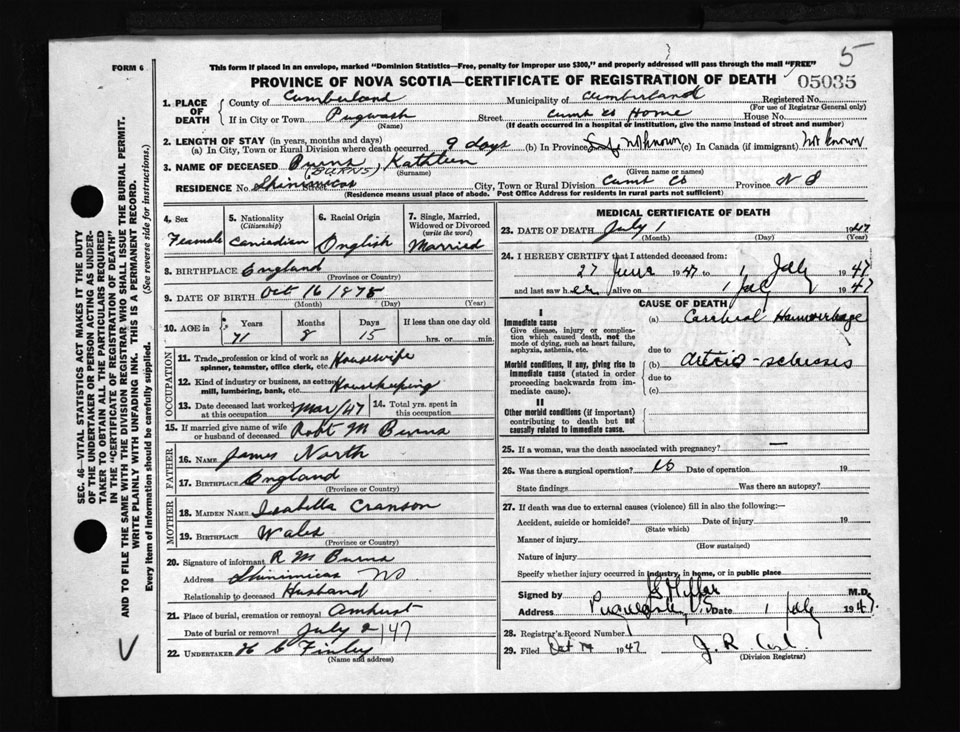 5
FORM 6
This form if placed in an envelope, marked "Dominion Statistics—Free, penalty for improper use $300," and properly addressed will pass through the mail "FREE"
PROVINCE OF NOVA SCOTIA—CERTIFICATE OF REGISTRATION OF DEATH
05035
1. PLACE OF DEATH
County of Cumberland Municipality of Cumberland Registered No.
(For use of Registrar General only)
If in City or Town Pugwash Street Cumb Co Home House No.
(Name) (If death occurred in a hospital or institution, give the name instead of street and number)
2. LENGTH OF STAY (in years, months and days)
(a) In City, Town or Rural Division where death occurred 9 days (b) In Province not known (c) In Canada (if immigrant) not known
3. NAME OF DECEASED Burns (BURNS) Kathleen
(Surname) (Given name or names)
RESIDENCE No. Shinimicas Street City, Town or Rural Division Cumb Co Province N S
(Residence means usual place of abode. Post Office Address for residents in rural parts not sufficient)
4. Sex
Feamale
5. Nationality (Citizenship)
Canadian
6. Racial Origin
English
7. Single, Married, Widowed or Divorced (write the word)
Married
8. BIRTHPLACE England
(Province or Country)
9. DATE OF BIRTH Oct 16 1875
(Month) (Day) (Year)
10. AGE in
Years Months Days If less than one day old
71 8 15 hrs. or min.
OCCUPATION
11. Trade, profession or kind of work as spinner, teamster, office clerk, etc. Housewife
12. Kind of industry or business, as cotton mill, lumbering, bank, etc. Housekeeping
13. Date deceased last worked at this occupation Mar/47
14. Total yrs. spent in this occupation
15. If married give name of wife or husband of deceased Robt M Burns
FATHER
16. NAME James North
17. BIRTHPLACE England
(Province or Country)
MOTHER
18. MAIDEN NAME Isabella Cranson
19. BIRTHPLACE Wales
(Province or Country)
20. Signature of informant R M Burns
Address Shinimicas NS
Relationship to deceased Husband
21. Place of burial, cremation or removal Amhurst
Date of burial or removal July 2/47
22. UNDERTAKER H C Finley
(Name and address)
MEDICAL CERTIFICATE OF DEATH
23. DATE OF DEATH July 1 1947
(Month) (Day) (Year)
24. I HEREBY CERTIFY that I attended deceased from:
27 June 1947 to 1 July 1947
and last saw her alive on 1 July 1947
CAUSE OF DEATH
I
Immediate cause
Give disease, injury or complication which caused death, not the mode of dying, such as heart failure, asphyxia, asthenia, etc.
(a) Cerebral Haemorrhage
due to
Morbid conditions, if any, giving rise to immediate cause (stated in order proceeding backwards from immediate cause).
(b)
due to
(c)
II
Other morbid conditions (if important) contributing to death but not causally related to immediate cause.
25. If a woman, was the death associated with pregnancy? —
26. Was there a surgical operation? no Date of operation 19
State findings Was there an autopsy?
27. If death was due to external causes (violence) fill in also the following:—
Accident, suicide or homicide? Date of injury 19
(State which)
Manner of injury
(How sustained)
Nature of injury
Specify whether injury occurred in industry, in home, or in public place
Signed by M.D.
Address Date 1 July 1947.
28. Registrar's Record Number
29. Filed Oct 1947 J. R.
(Division Registrar)
SEC. 46—VITAL STATISTICS ACT MAKES IT THE DUTY
OF THE UNDERTAKER OR PERSON ACTING AS UNDERTAKER
TO OBTAIN ALL THE PARTICULARS REQUIRED
IN THE "CERTIFICATE OF REGISTRATION OF DEATH"
AND TO FILE THE SAME WITH THE DIVISION REGISTRAR WHO SHALL ISSUE THE BURIAL PERMIT.
WRITE PLAINLY WITH UNFADING INK. THIS IS A PERMANENT RECORD.
Every item of information should be carefully supplied. (See reverse side for instructions.)